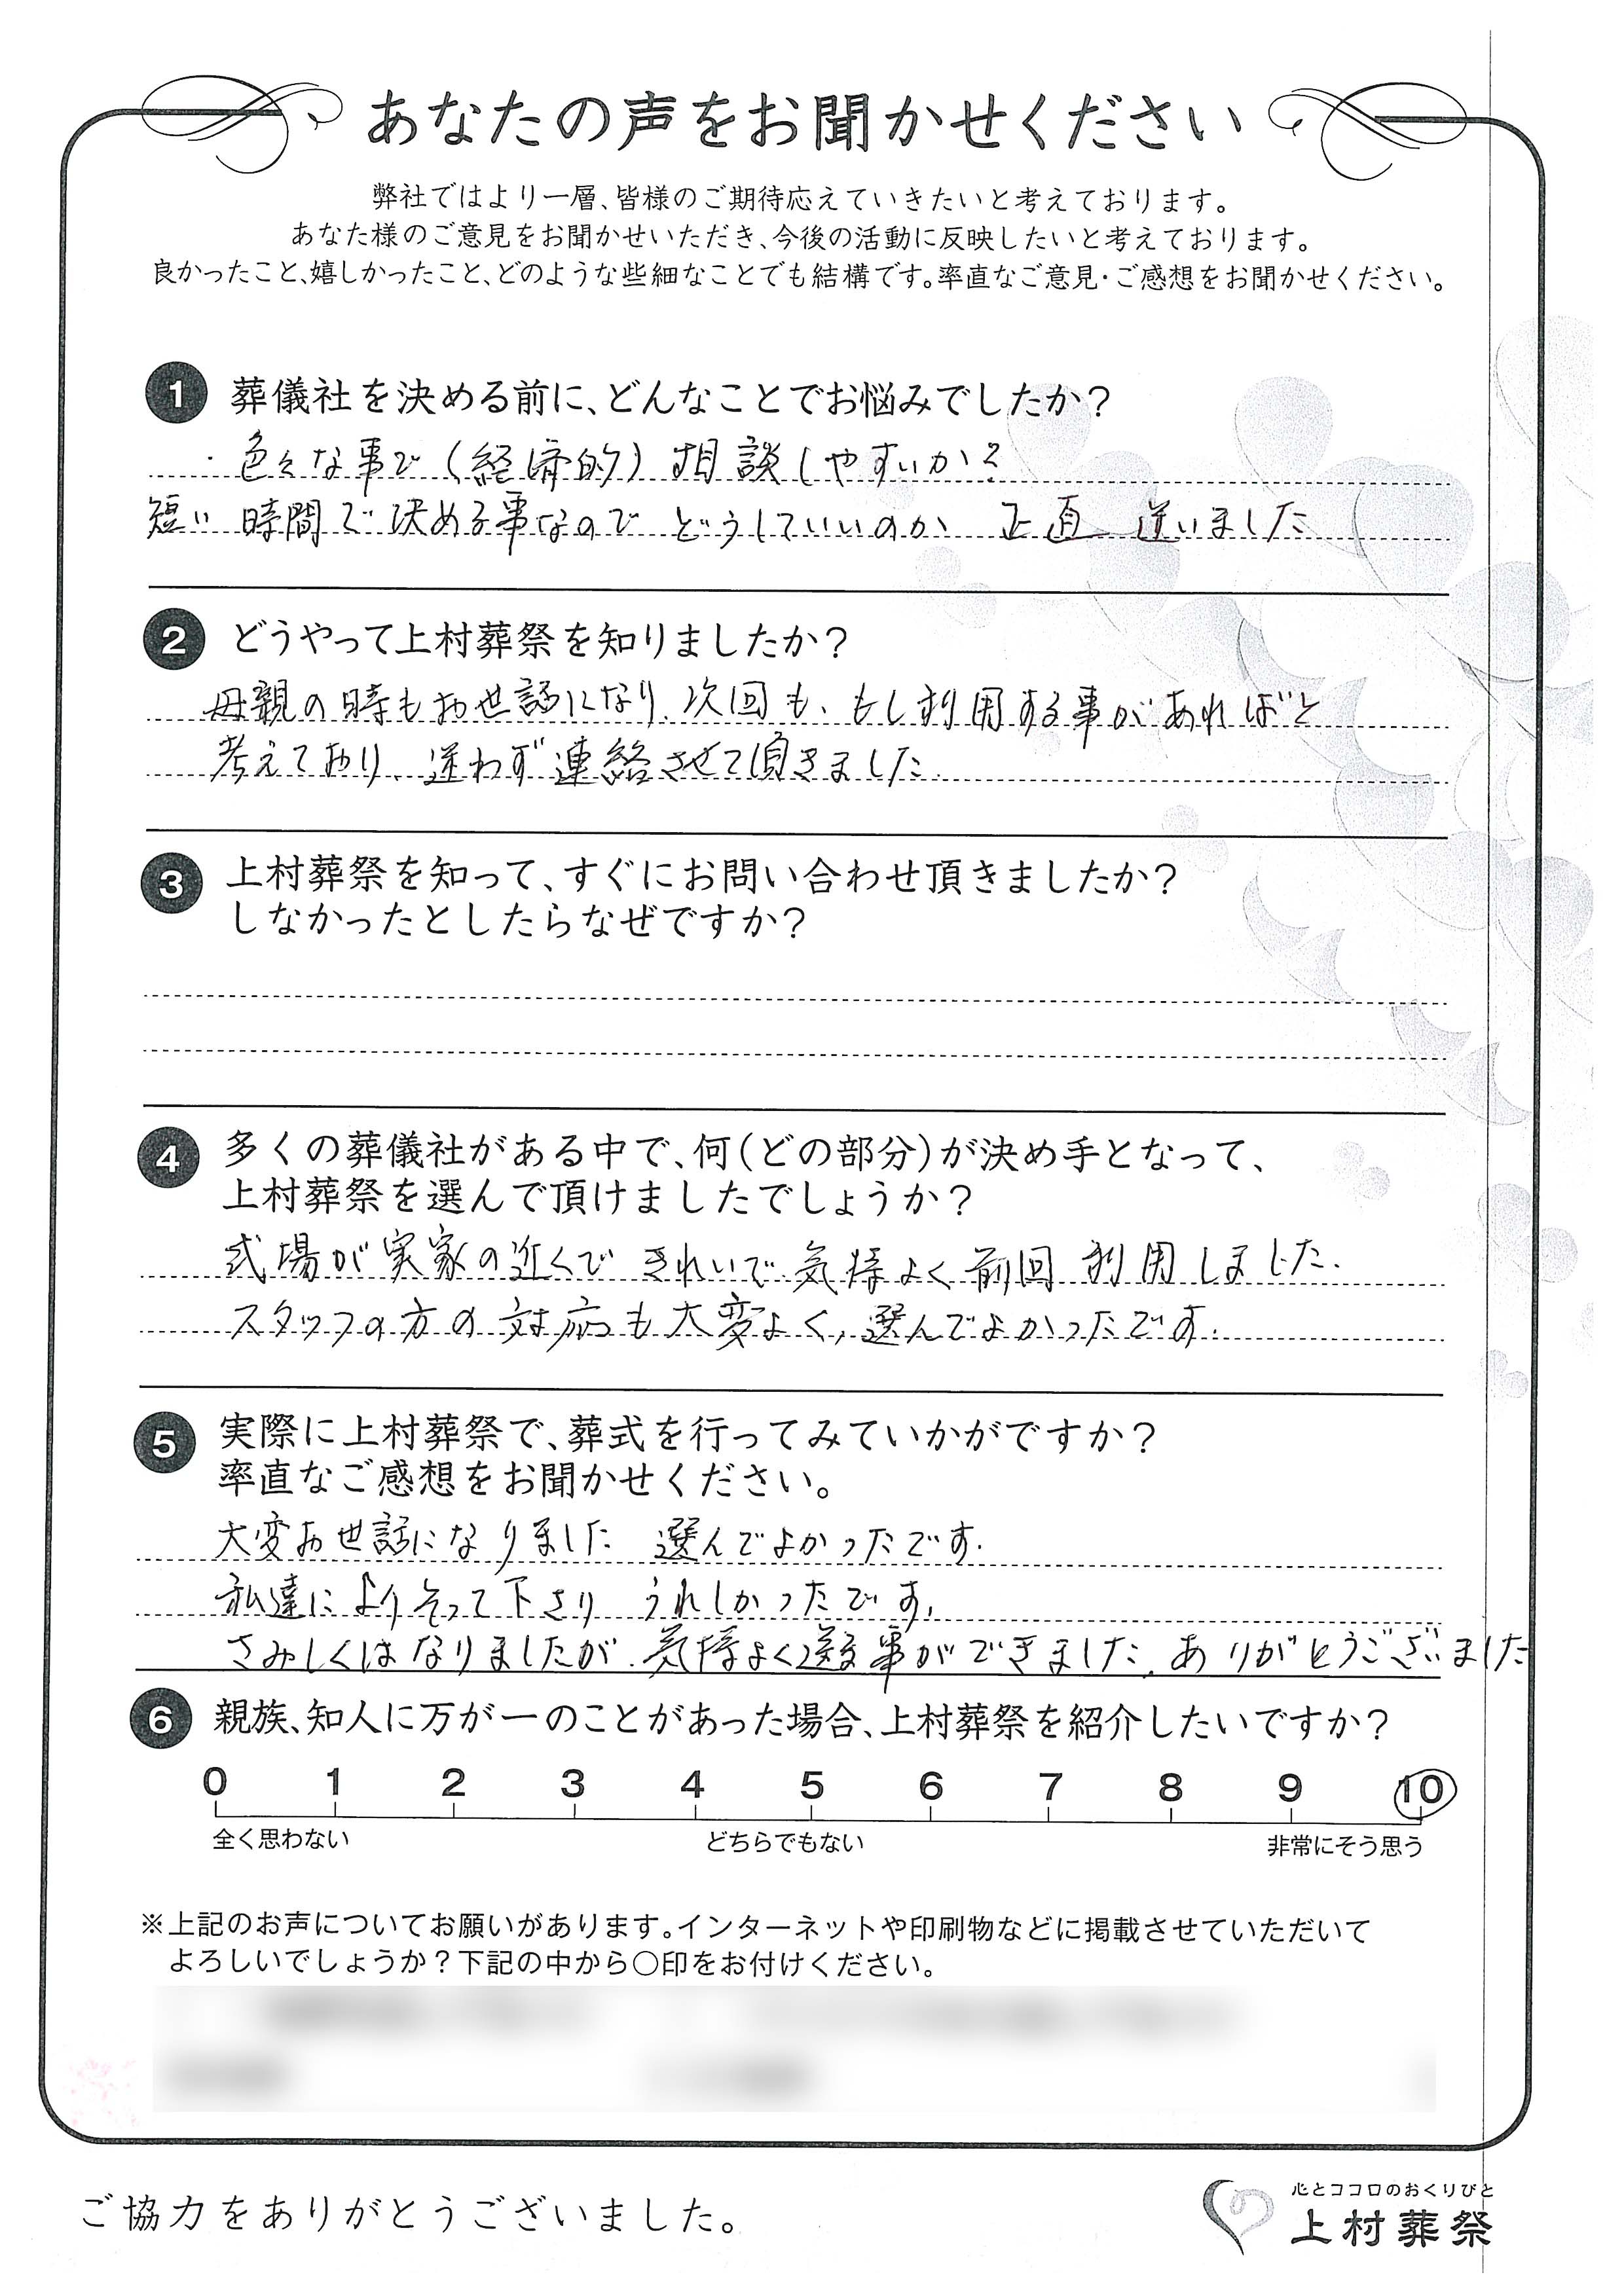 あなたの声をお聞かせください
弊社ではより一層、皆様のご期待応えていきたいと考えております。
あなた様のご意見をお聞かせいただき、今後の活動に反映したいと考えております。
良かったこと、嬉しかったこと、どのような些細なことでも結構です。率直なご意見・ご感想をお聞かせください。
1 葬儀社を決める前に、どんなことでお悩みでしたか?
・色々な事で(経済的)相談しやすいか?
短い時間で決める事なので どうしていいのか 正直 迷いました
2 どうやって上村葬祭を知りましたか?
母親の時もお世話になり、次回も、もし利用する事があればと
考えており、迷わず連絡させて頂きました.
3 上村葬祭を知って、すぐにお問い合わせ頂きましたか?
しなかったとしたらなぜですか?
4 多くの葬儀社がある中で、何(どの部分)が決め手となって、
上村葬祭を選んで頂けましたでしょうか?
式場が実家の近くで きれいで 気持よく 前回 利用しました.
スタッフの方の対応も大変よく、選んでよかったです.
5 実際に上村葬祭で、葬式を行ってみていかがですか?
率直なご感想をお聞かせください。
大変お世話になりました 選んでよかったです.
私達によりそって下さり うれしかったです.
さみしくはなりましたが、気持よく送る事ができました. ありがとうございました
6 親族、知人に万が一のことがあった場合、上村葬祭を紹介したいですか?
0 1 2 3 4 5 6 7 8 9 10
全く思わない どちらでもない 非常にそう思う
※上記のお声についてお願いがあります。インターネットや印刷物などに掲載させていただいて
よろしいでしょうか?下記の中から○印をお付けください。
ご協力をありがとうございました。
心とココロのおくりびと
上村葬祭